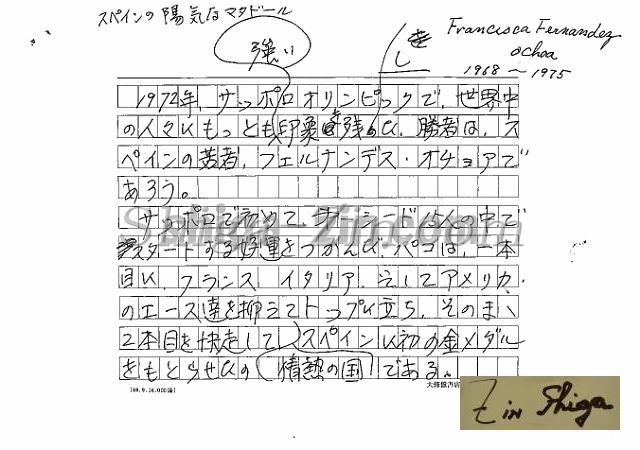 スペインの陽気なマタドール
Francisca Fernandez
Ochoa
1968 〜 1975
強い
し
1972年、サッポロオリンピックで、世界中
の人々にもっとも印象を残した、勝者は、ス
ペインの若者、フェルナンデス・オチョアで
あろう。
サッポロで初めて、
15人の中で
スタートする好運をつかんだ、パコは、一本
目に、フランス、イタリア、そしてアメリカ、
のエース達を抑えてトップに立ち、そのまゝ
2本目を快走して、スペインに初の金メダル
をもとらせたの
情熱の国
である。
Shiga-Zin.com
Z in Shiga